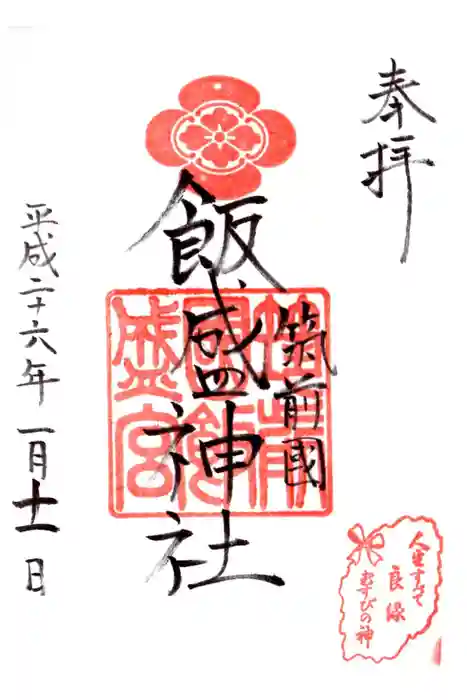 奉拝
筑前國
飯盛神社
筑前國飯盛宮
平成二十六年一月十一日
人生すべて
良縁
むすびの神